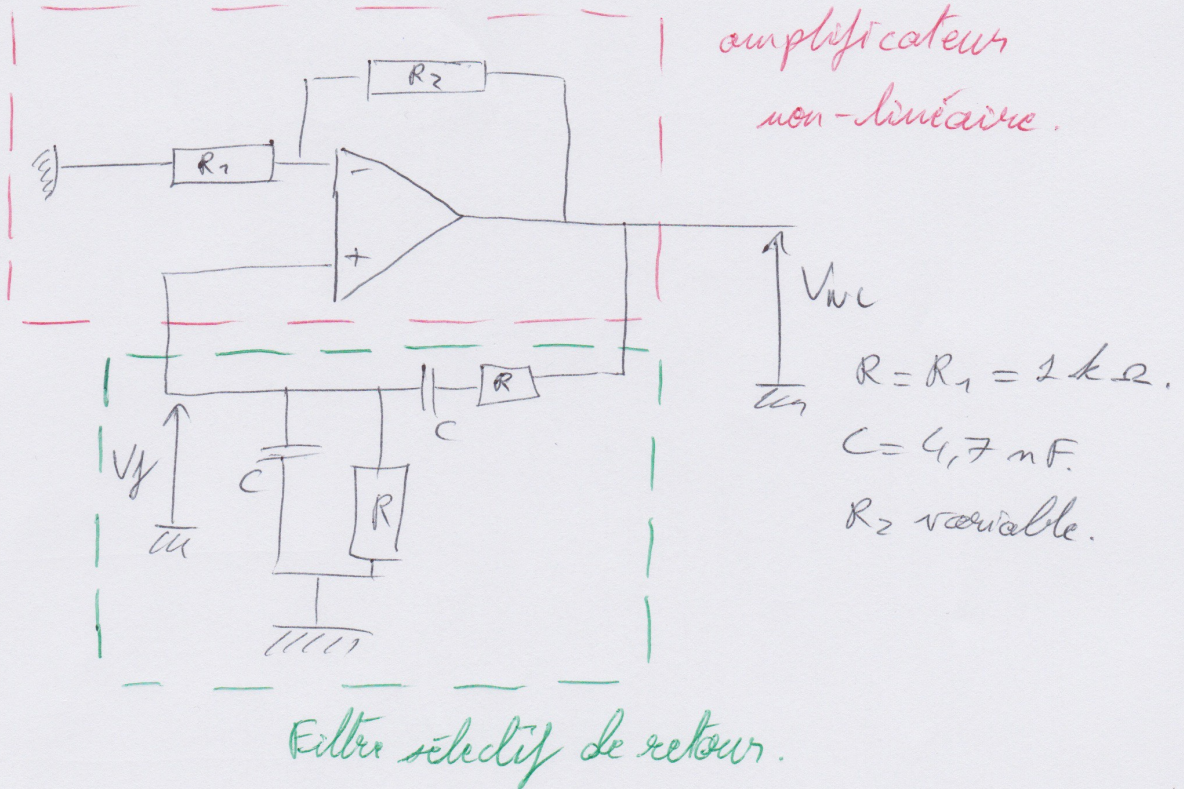 amplificateur
non-linéaire.
R2
R1
-
+
VNL
R
C
Vf
C
R
R = R1 = 1 k Ω.
C = 4,7 nF.
R2 variable.
Filtre sélectif de retour.